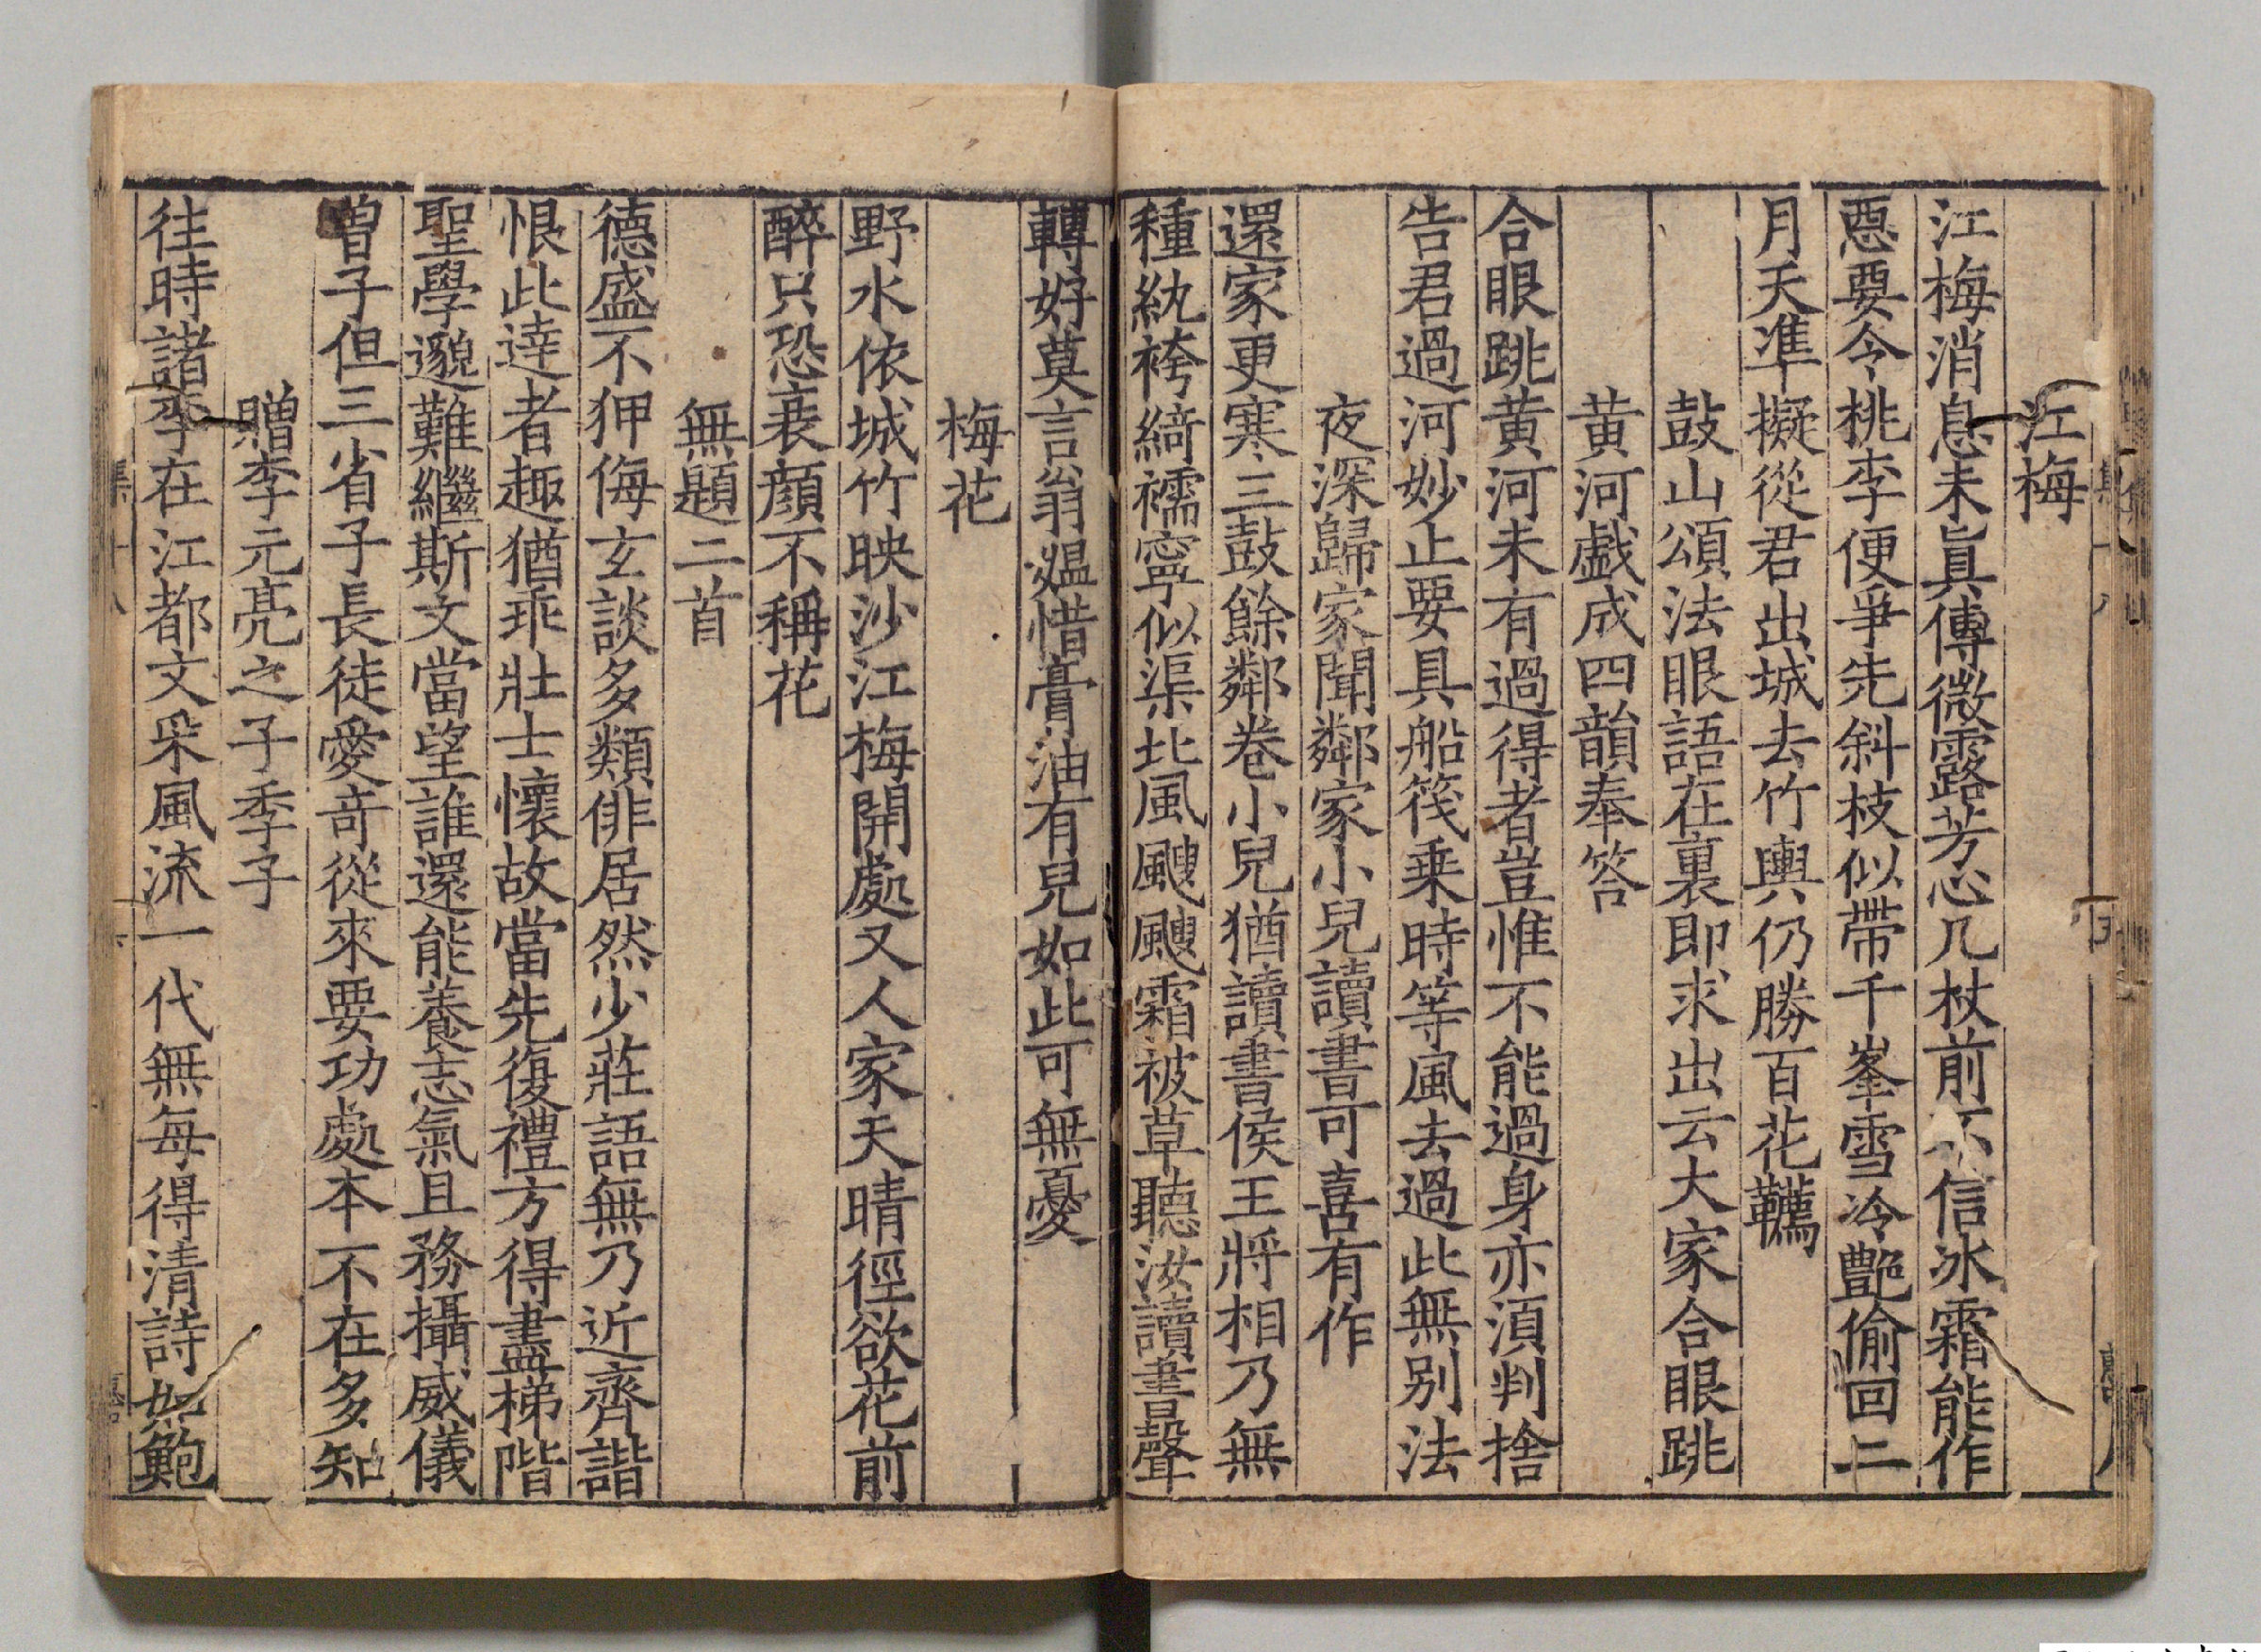 江梅
江梅消息未眞傳微露芳心几杖前不信冰霜能作
惡要令桃李便爭先斜枝似帶千峯雪冷艷偷回二
月天準擬從君出城去竹輿仍勝百花韉
鼓山頌法眼語在裏即求出云大家合眼跳
黄河戱成四韻奉答
合眼跳黄河未有過得者豈惟不能過身亦湏判捨
告君過河妙止要具船筏乗時等風去過此無别法
夜深歸家聞鄰家小兒讀書可喜有作
還家更寒三鼓餘鄰巷小兒猶讀書侯王將相乃無
種紈袴綺襦寧似渠北風颼颼霜被草聽汝讀書聲
轉好莫言翁媼惜膏油有兒如此可無憂
梅花
野水依城竹映沙江梅開處又人家天晴徑欲花前
醉只恐衰顔不稱花
無題二首
德盛不狎侮玄談多類俳居然少莊語無乃近齊諧
恨此逹者趣猶乖壯士懷故當先復禮方得盡梯階
聖學邈難繼斯文當望誰還能養志氣且務攝威儀
曽子但三省子長徒愛竒從來要功處本不在多知
贈李元亮之子季子
往時諸李在江都文采風流一代無每得清詩如鮑